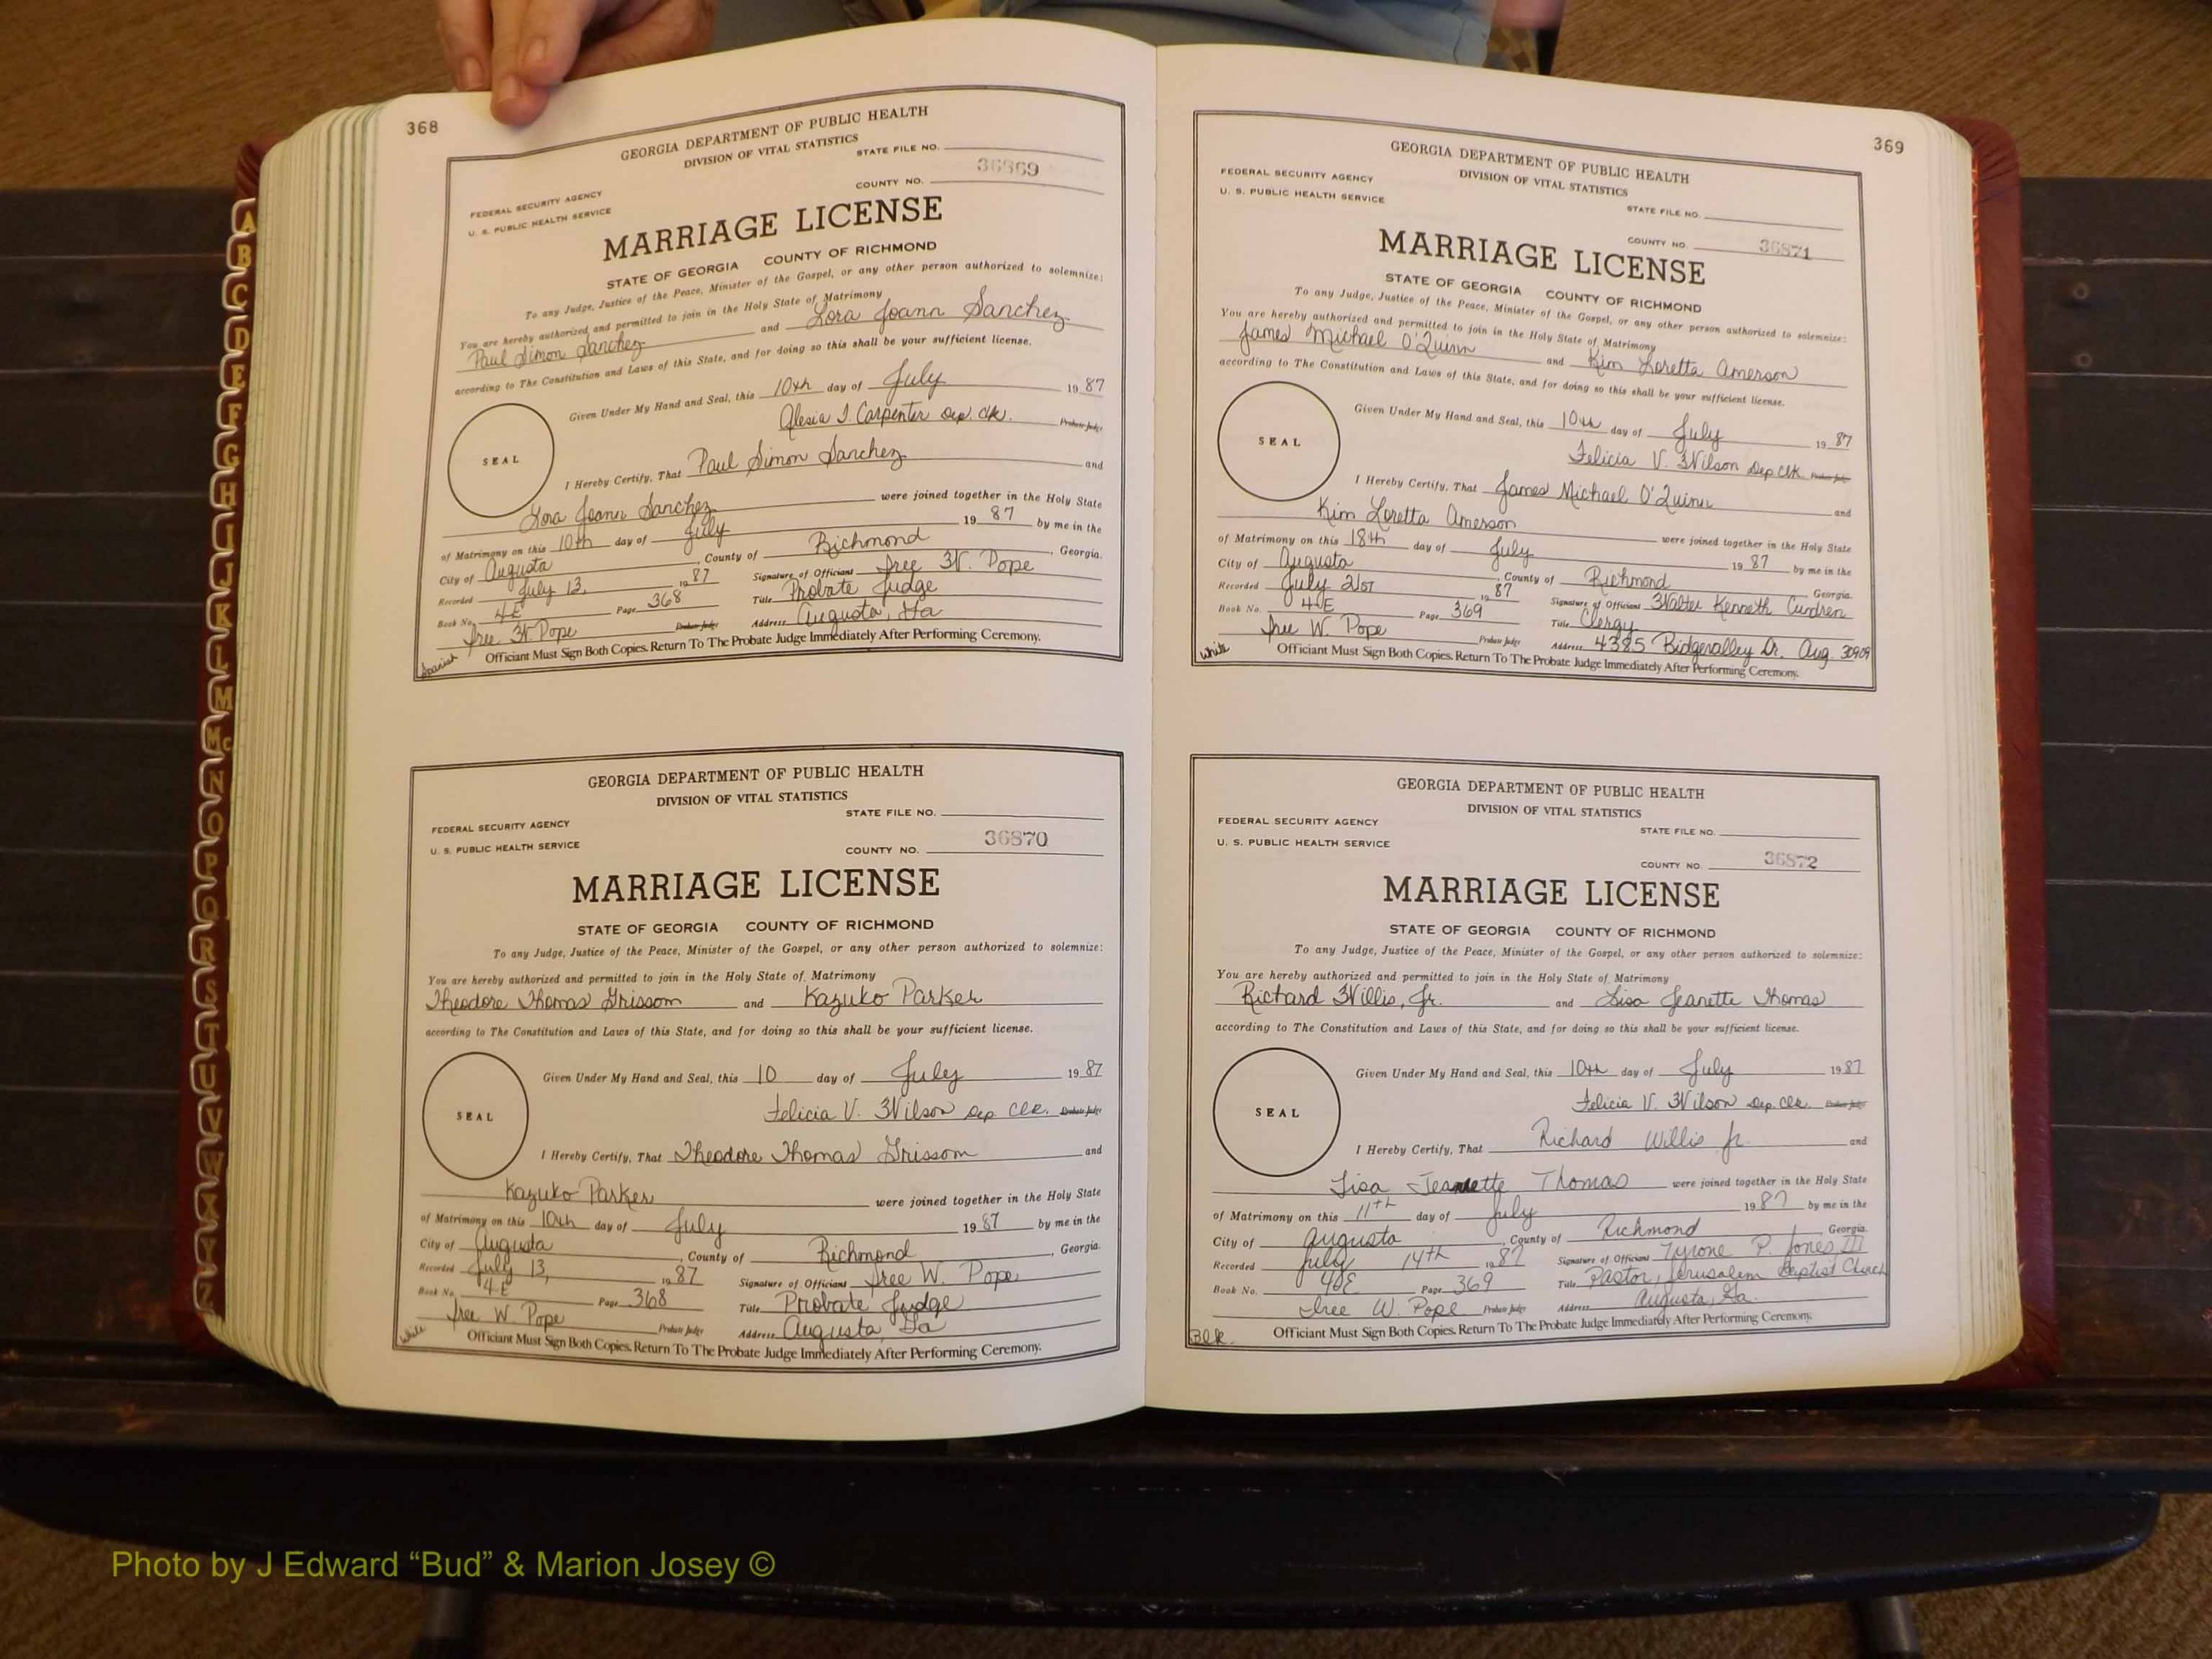 368
GEORGIA DEPARTMENT OF PUBLIC HEALTH
DIVISION OF VITAL STATISTICS
STATE FILE NO.
36869
COUNTY NO.
FEDERAL SECURITY AGENCY
U. S. PUBLIC HEALTH SERVICE
MARRIAGE LICENSE
STATE OF GEORGIA COUNTY OF RICHMOND
To any Judge, Justice of the Peace, Minister of the Gospel, or any other person authorized to solemnize:
You are hereby authorized and permitted to join in the Holy State of Matrimony
Paul Simon Sanchez and Lora Joann Sanchez
according to The Constitution and Laws of this State, and for doing so this shall be your sufficient license.
Given Under My Hand and Seal, this 10th day of July 19 87
Alesia I. Carpenter Dep. Clk. Probate Judge
SEAL
I Hereby Certify, That Paul Simon Sanchez and
Lora Joann Sanchez were joined together in the Holy State
of Matrimony on this 10th day of July 19 87 by me in the
City of Augusta, County of Richmond, Georgia.
Recorded July 13, 19 87 Signature of Officiant Isee W. Pope
Book No. 4E Page 368 Title Probate Judge
Isee W. Pope Probate Judge Address Augusta, Ga
Spanish Officiant Must Sign Both Copies. Return To The Probate Judge Immediately After Performing Ceremony.
GEORGIA DEPARTMENT OF PUBLIC HEALTH
DIVISION OF VITAL STATISTICS
STATE FILE NO.
FEDERAL SECURITY AGENCY
36870
U. S. PUBLIC HEALTH SERVICE
COUNTY NO.
MARRIAGE LICENSE
STATE OF GEORGIA COUNTY OF RICHMOND
To any Judge, Justice of the Peace, Minister of the Gospel, or any other person authorized to solemnize:
You are hereby authorized and permitted to join in the Holy State of Matrimony
Theodore Thomas Grissom and Kazuko Parker
according to The Constitution and Laws of this State, and for doing so this shall be your sufficient license.
Given Under My Hand and Seal, this 10 day of July 19 87
Felicia V. Wilson Dep. Clk. Probate Judge
SEAL
I Hereby Certify, That Theodore Thomas Grissom and
Kazuko Parker were joined together in the Holy State
of Matrimony on this 10th day of July 19 87 by me in the
City of Augusta, County of Richmond, Georgia.
Recorded July 13, 19 87 Signature of Officiant Isee W. Pope
Book No. 4E Page 368 Title Probate Judge
Isee W. Pope Probate Judge Address Augusta, Ga
White Officiant Must Sign Both Copies. Return To The Probate Judge Immediately After Performing Ceremony.
369
GEORGIA DEPARTMENT OF PUBLIC HEALTH
DIVISION OF VITAL STATISTICS
FEDERAL SECURITY AGENCY
U. S. PUBLIC HEALTH SERVICE
STATE FILE NO.
COUNTY NO. 36871
MARRIAGE LICENSE
STATE OF GEORGIA COUNTY OF RICHMOND
To any Judge, Justice of the Peace, Minister of the Gospel, or any other person authorized to solemnize:
You are hereby authorized and permitted to join in the Holy State of Matrimony
James Michael O'Quinn and Kim Loretta Amerson
according to The Constitution and Laws of this State, and for doing so this shall be your sufficient license.
Given Under My Hand and Seal, this 10th day of July 19 87
Felicia V. Wilson Dep. Clk. Probate Judge
SEAL
I Hereby Certify, That James Michael O'Quinn and
Kim Loretta Amerson were joined together in the Holy State
of Matrimony on this 18th day of July 19 87 by me in the
City of Augusta, County of Richmond Georgia.
Recorded July 21st 19 87 Signature of Officiant Walter Kenneth
Book No. 44E Page 369 Title Clergy
Isee W. Pope Probate Judge Address 4385 Ridgevalley Dr. Aug. 30909
White Officiant Must Sign Both Copies. Return To The Probate Judge Immediately After Performing Ceremony.
GEORGIA DEPARTMENT OF PUBLIC HEALTH
DIVISION OF VITAL STATISTICS
FEDERAL SECURITY AGENCY
STATE FILE NO.
U. S. PUBLIC HEALTH SERVICE
COUNTY NO. 36872
MARRIAGE LICENSE
STATE OF GEORGIA COUNTY OF RICHMOND
To any Judge, Justice of the Peace, Minister of the Gospel, or any other person authorized to solemnize:
You are hereby authorized and permitted to join in the Holy State of Matrimony
Richard Willis, Jr. and Lisa Jeanette Thomas
according to The Constitution and Laws of this State, and for doing so this shall be your sufficient license.
Given Under My Hand and Seal, this 10th day of July 19 87
Felicia V. Wilson Dep. Clk. Probate Judge
SEAL
I Hereby Certify, That Richard Willis Jr. and
Lisa Jeanette Thomas were joined together in the Holy State
of Matrimony on this 11th day of July 19 87 by me in the
City of Augusta, County of Richmond, Georgia.
Recorded July 14th 19 87 Signature of Officiant Tyrone P. Jones, III
Book No. Page 369 Title Pastor, Jerusalem Baptist Church
Isee W. Pope Probate Judge Address Augusta, Ga.
Blk. Officiant Must Sign Both Copies. Return To The Probate Judge Immediately After Performing Ceremony.
A
B
C
D
E
F
G
H
I
J
K
L
M
Mc
N
O
P
Q
R
S
T
U
V
W
X
Y
Z
Photo by J Edward “Bud” & Marion Josey ©